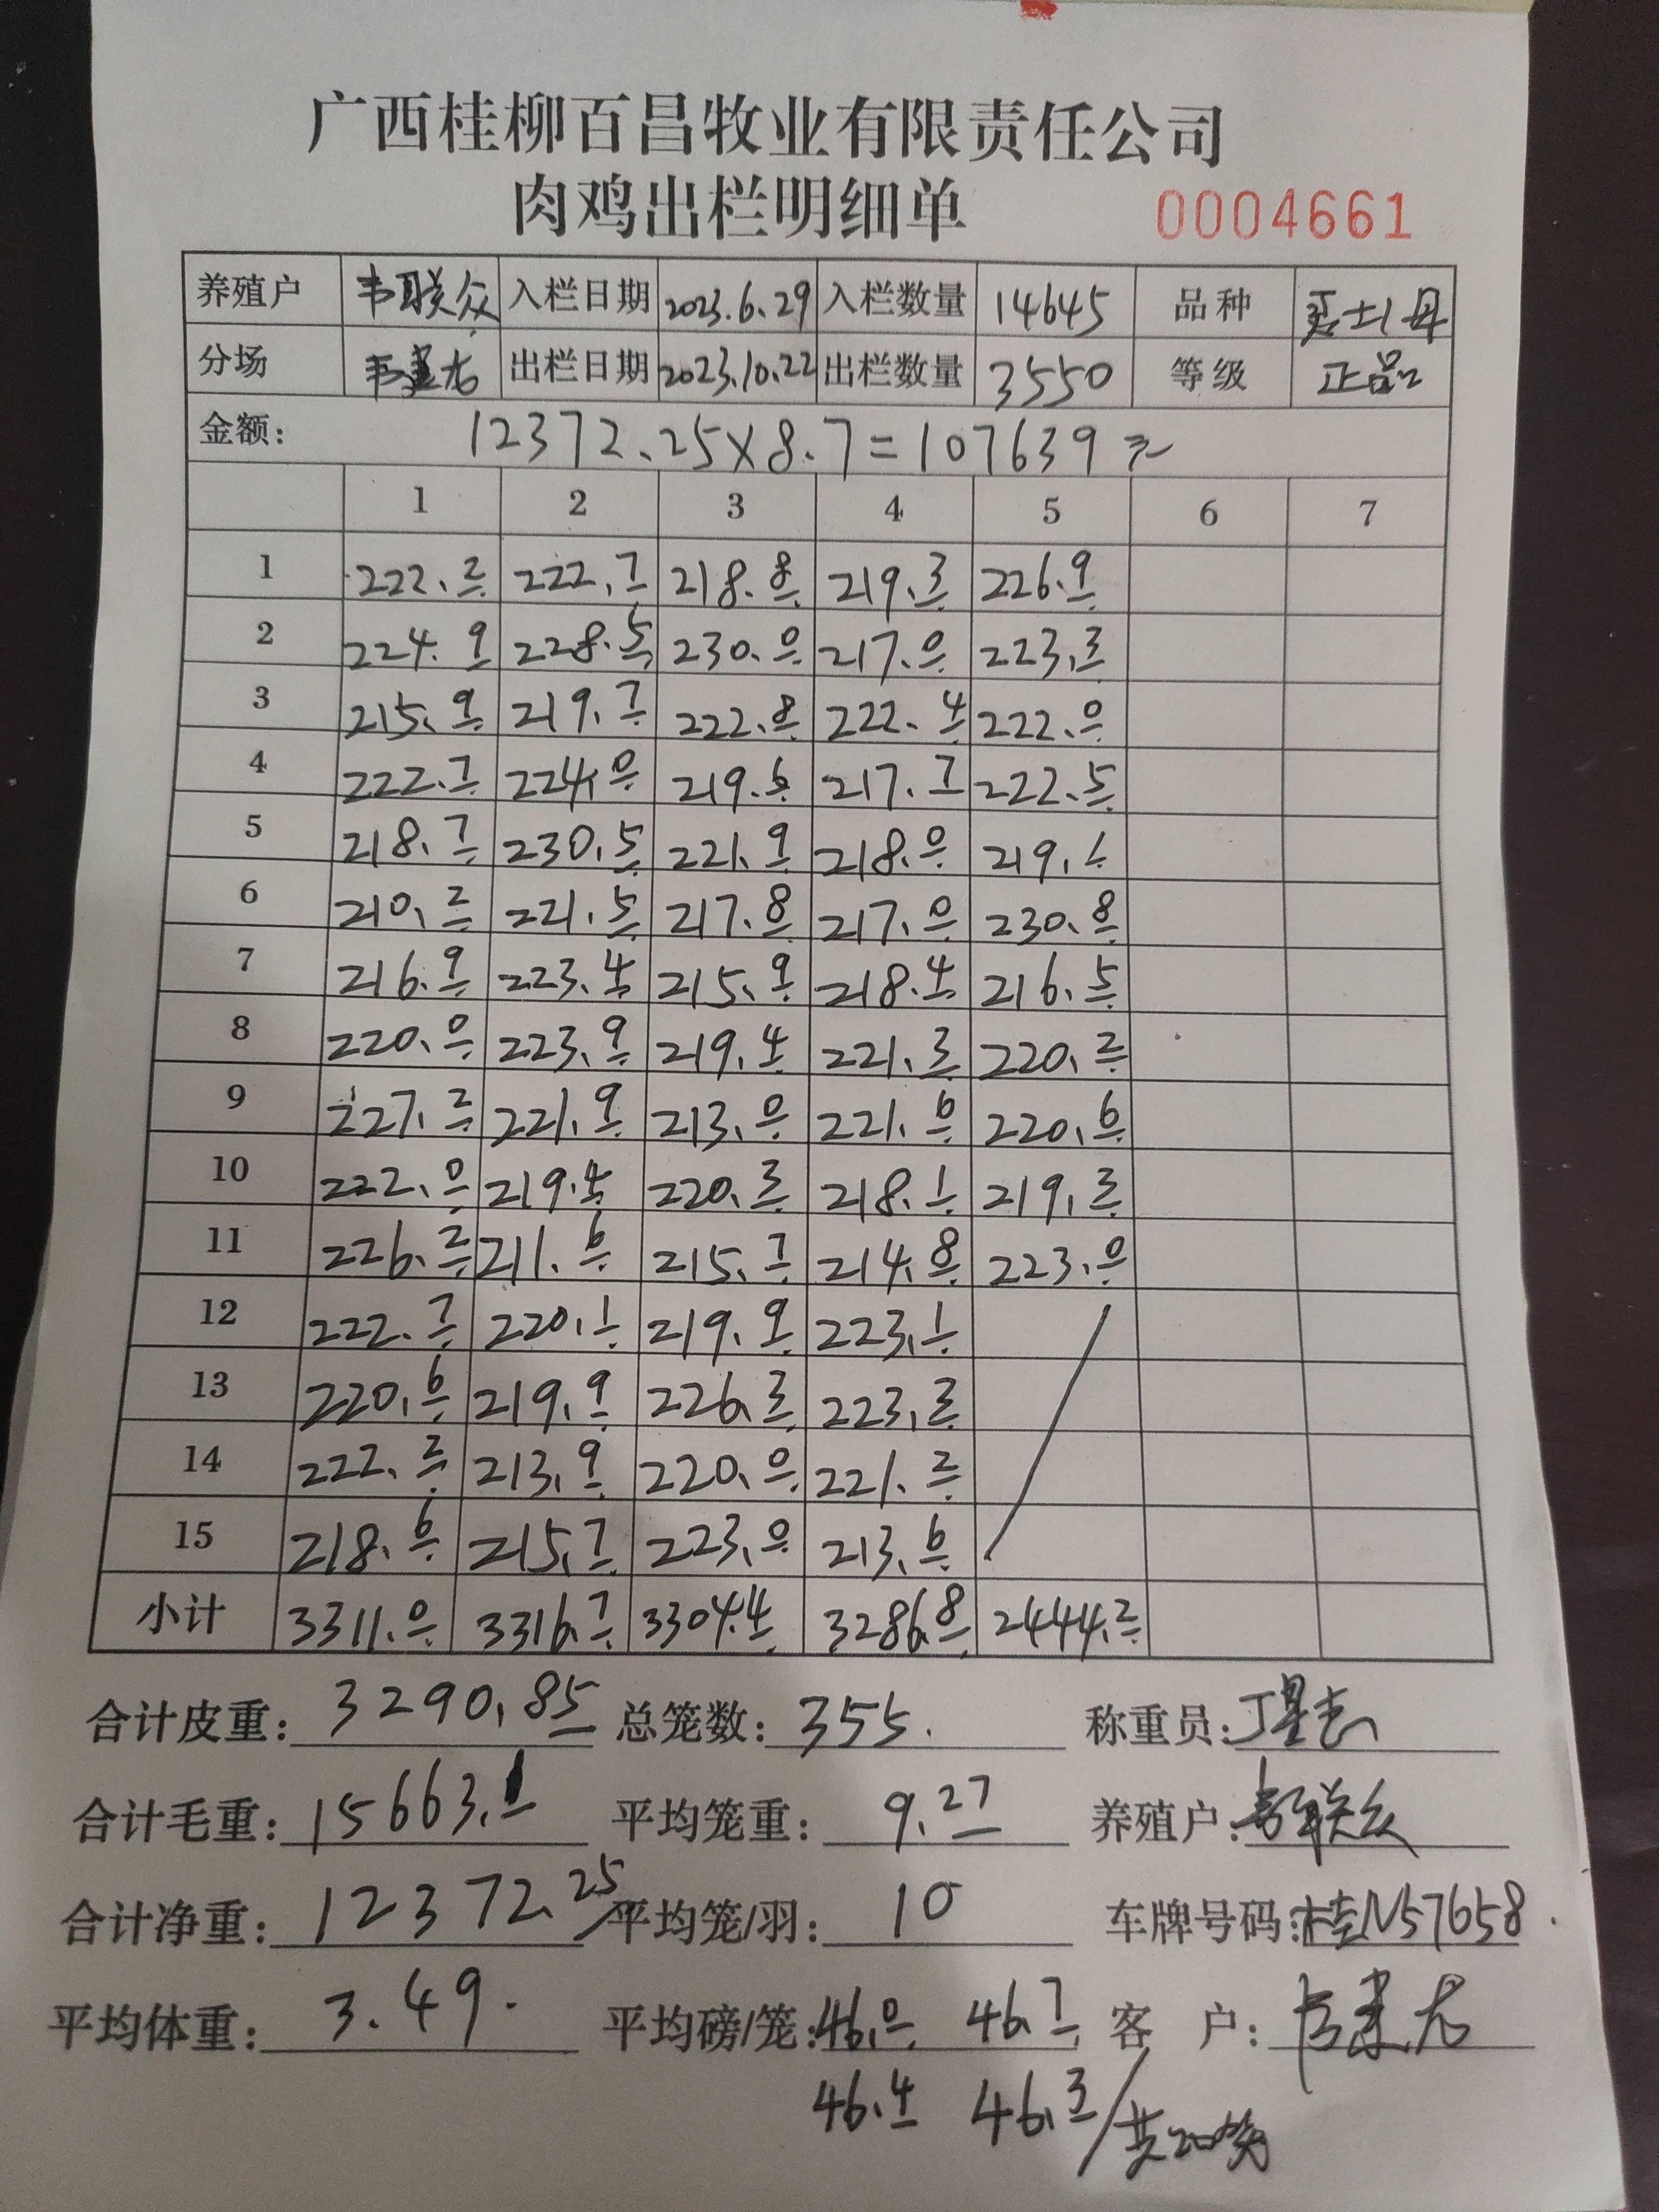 广西桂柳百昌牧业有限责任公司
肉鸡出栏明细单 0004661
养殖户 韦联众 入栏日期 2023.6.29 入栏数量 14645 品种
分场 出栏日期 2023.10.22 出栏数量 3550 等级 正品
金额: 12372.25×8.7=107639元
1 2 3 4 5 6 7
1 222.2 222.7 218.8 219.3 226.9
2 224.9 228.5 230.0 217.0 223.3
3 215.9 219.7 222.8 222.4 222.0
4 222.7 224.0 219.6 217.7 222.5
5 218.7 230.5 221.9 218.0 219.1
6 210.2 221.5 217.8 217.0 230.8
7 216.9 223.4 215.9 218.4 216.5
8 220.0 223.9 219.4 221.3 220.2
9 227.2 221.9 213.0 221.6 220.6
10 222.0 219.4 220.3 218.1 219.3
11 226.2 211.6 215.7 214.8 223.0
12 222.7 220.1 219.9 223.1
13 220.6 219.9 226.3 223.3
14 222.2 213.9 220.0 221.2
15 218.6 215.7 223.0 213.6
小计 3311.0 3316.7 3304.4 3286.8 2444.2
合计皮重: 3290.85 总笼数: 355. 称重员:
合计毛重: 15663.1 平均笼重: 9.27 养殖户: 韦联众
合计净重: 12372.25 平均笼/羽: 10 车牌号码: 桂N57658.
平均体重: 3.49. 平均磅/笼: 46.0 46.7 客 户:
46.4 46.3/共20笼